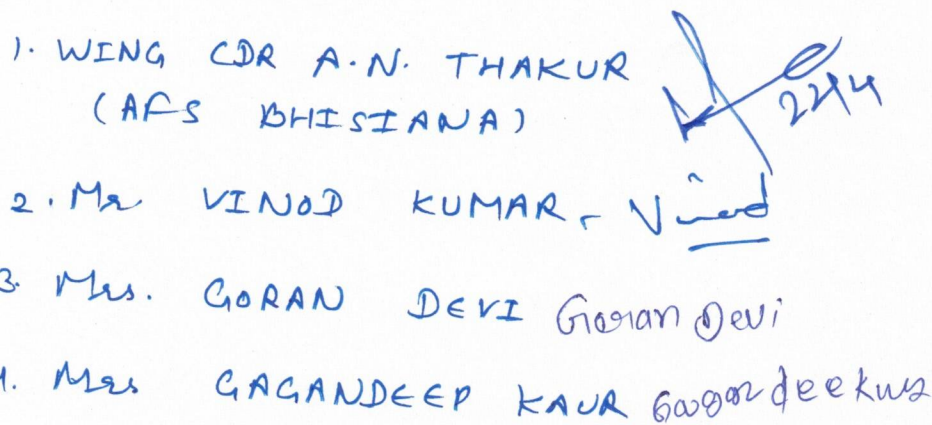 1. WING CDR A.N. THAKUR
(AFS BHISIANA)
22/4
2. Mr VINOD KUMAR - Vinod
3. Mrs. GORAN DEVI Goran Devi
4. Mrs GAGANDEEP KAUR